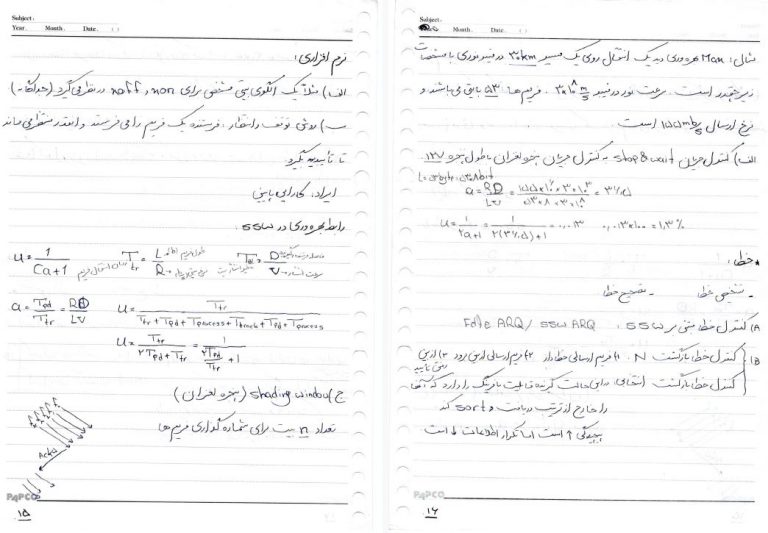 Subject:
Year. Month. Date. ( )
نرم افزاری:
الف) مثلاً یک الگوی بیتی مشخص برای non و noff در نظر می‌گیرد (جداگانه)
ب) روش توقف و انتظار، فرستنده یک فریم را می فرستد و آنقدر منتظر می ماند
تا تأییدیه بگیرد
ایراد، کارایی پایین
رابطه بهره وری در ssw.
u = 1 / Ca+1 Ttr = L / R طول فریم Tpd = D / V
a = Tpd / Ttr = RD / LV u = Ttr / Ttr + Tpd + Tprocess + Ttrack + Tpd + Tprocess
u = Ttr / 2Tpd + Ttr = 1 / 2Tpd / Ttr + 1
ج) shading window (پنجره لغزان)
تعداد n بیت برای شماره گذاری فریم ها
Acks
PAPCO
۱۵
Subject:
Month. Date. ( )
مثال: Max بهره وری در یک انتقال روی یک مسیر ۳۰km در فیبر نوری با مشخصات
زیر چقدر است. سرعت نور در فیبر ۳×۱۰^۸ m/s. فریم ها ۵۳ بایتی می باشد و
نرخ ارسال ۱۵۵mb/s است.
الف) کنترل جریان stop & wait ب) کنترل جریان پنجره لغزان با طول پنجره ۱۲۷
a = RD / LV = ۱۵۵×۱۰^۶×۳۰×۱۰^۳ / ۵۳×۸×۳×۱۰^۸ = ۳۶٫۵
u = 1 / ۲a+1 = 1 / ۲(۳۶٫۵)+1 = ۰٫۰۱۳ ۰٫۰۱۳×۱۰۰ = ۱٫۳%
خطا:
- تشخیص خطا - تصحیح خطا
A) کنترل خطا مبتنی بر ssw. Idle ARQ / ssw ARQ
B) کنترل خطا بازگشت N. ۱) فریم ارسالی خطا دار ۲) فریم ارسالی از بین رود ۳) از بین رفتن تأیید
کنترل خطا بازگشت انتخابی در این حالت گیرنده قابلیت بافرینگ را دارد که آنها
را خارج از ترتیب دریافت و sort کند
پیچیدگی ↑ است اما تکرار اطلاعات ↓ است
PAPCO
۱۶